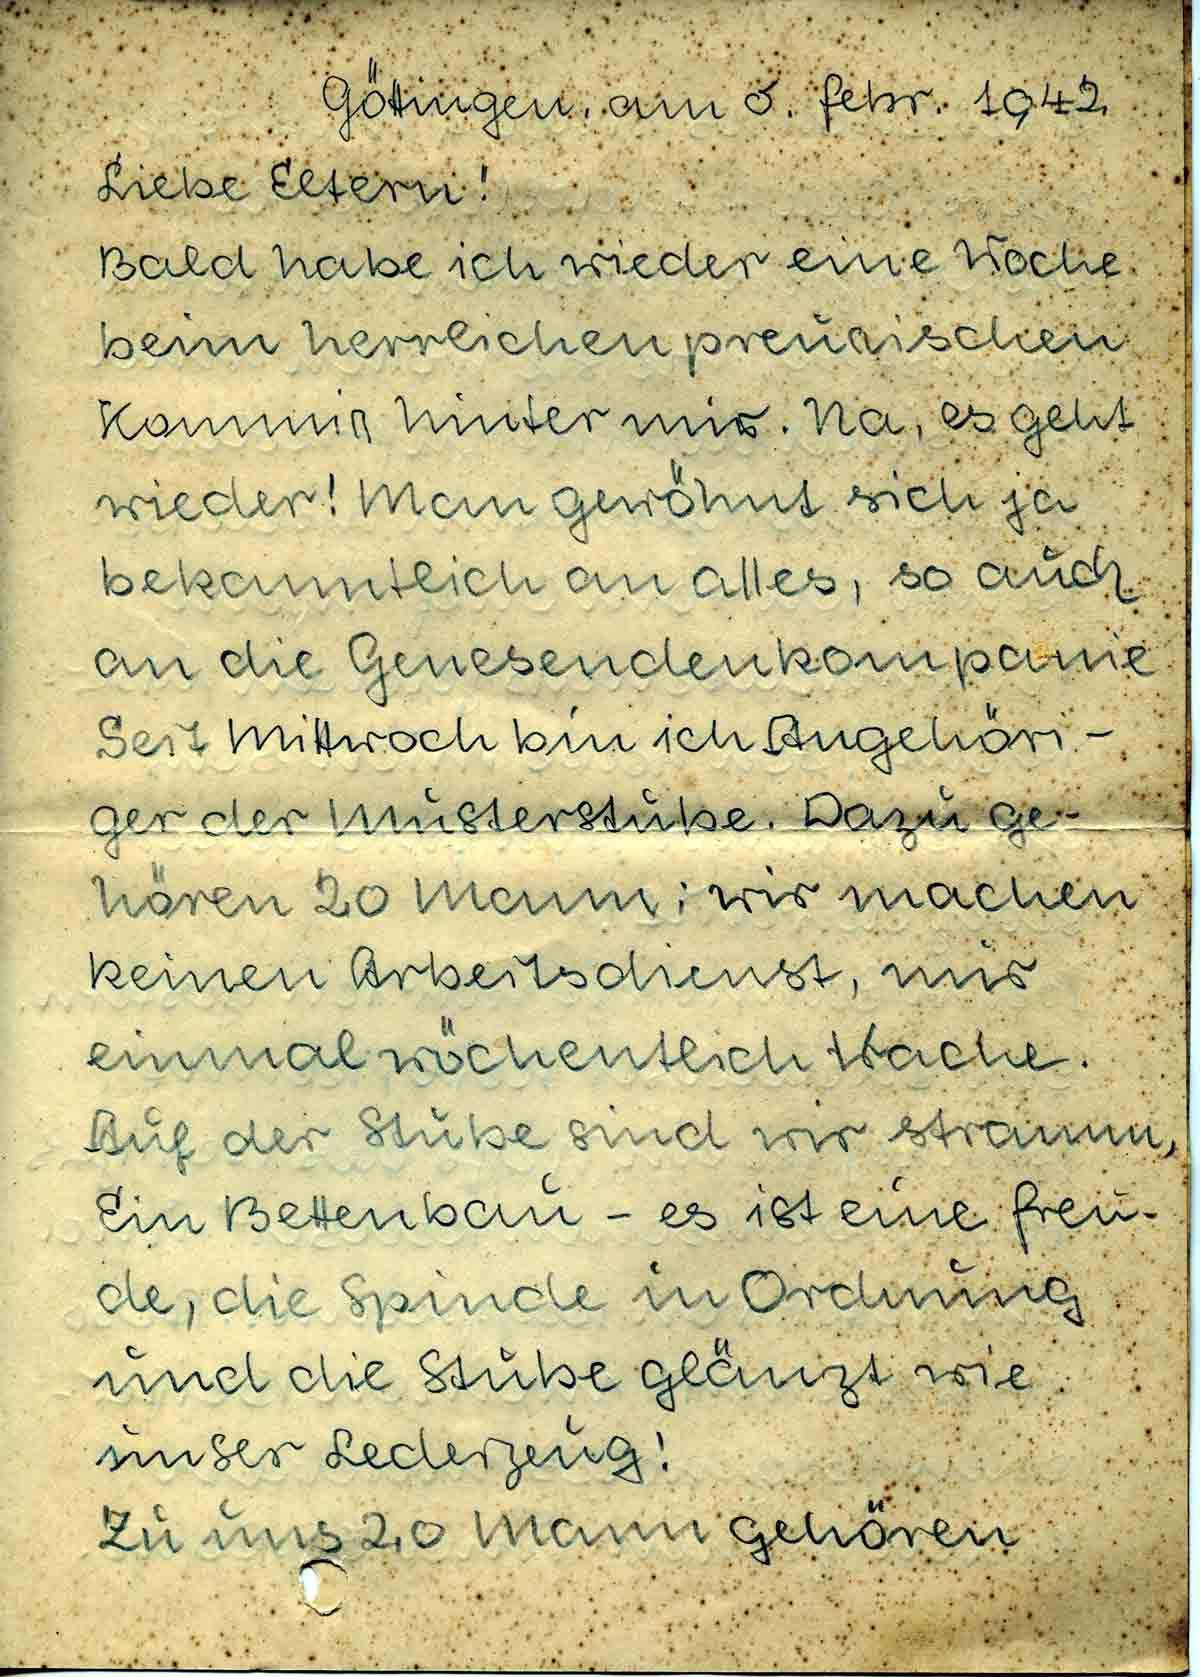 Göttingen, am 5. Febr. 1942.
Liebe Eltern!
Bald habe ich wieder eine Woche
beim herrlichen preußischen
Kommiß hinter mir. Na, es geht
wieder! Man gewöhnt sich ja
bekanntlich an alles, so auch
an die Genesendenkompanie
Seit Mittwoch bin ich Angehöri-
ger der Musterstube. Dazu ge-
hören 20 Mann; wir machen
keinen Arbeitsdienst, nur
einmal wöchentlich Wache.
Auf der Stube sind wir stramm,
Ein Bettenbau – es ist eine Freu-
de, die Spinde in Ordnung
und die Stube glänzt wie
unser Lederzeug!
Zu uns 20 Mann gehören